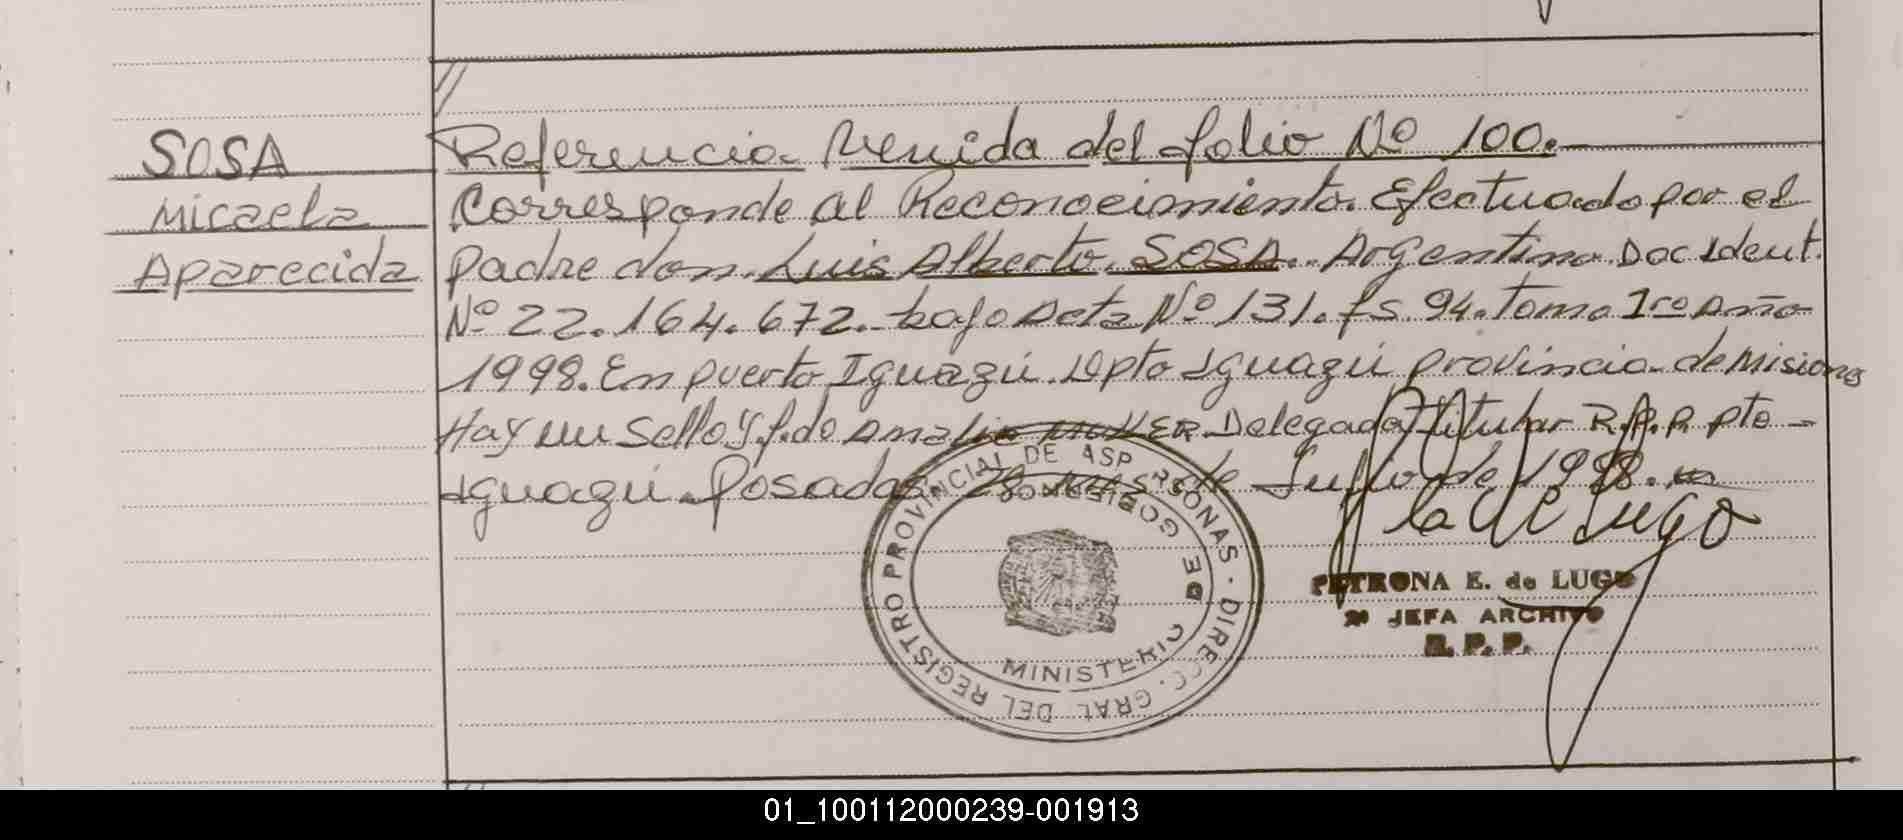 SOSA
Micaela
Aparecida
Referencia Venida del folio Nº 100.
Corresponde al Reconocimiento. Efectuado por el
padre don. Luis Alberto. SOSA. Argentino. Doc Ident.
Nº 22.164.672. bajo Acta Nº 131. fs. 94. tomo 1ro Año
1998. En puerto Iguazú. Dpto Iguazú provincia de Misiones
Hay un Sello y f. do Amalia Delegada titular R.P.P. pto
Iguazú. Posadas, de Julio de 1998.
REGISTRO PROVINCIAL DE LAS PERSONAS · DIRECC. GRAL. DEL
MINISTERIO DE GOBIERNO
PETRONA E. de LUGO
2ª JEFA ARCHIVO
R. P. P.
01_100112000239-001913